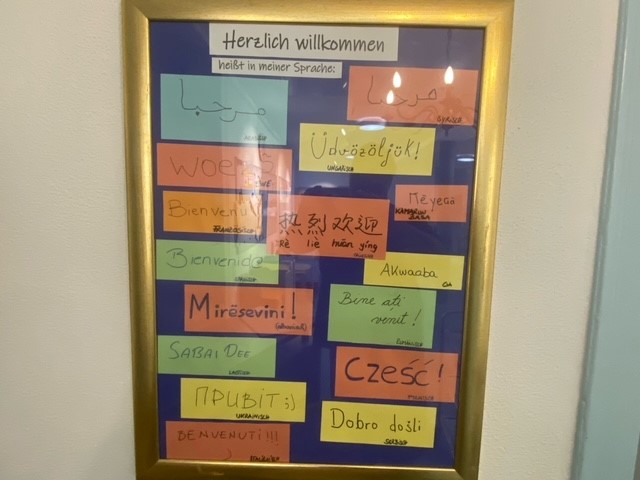 Herzlich willkommen
heißt in meiner Sprache:
مرحبا
مرحبا
SYRISCH
Üdvözöljük!
UNGARISCH
WOEZƆ
EWE
Bienvenu
FRANZÖSISCH
热烈欢迎
Rè liè huān yíng
KAMERUN
Bienvenid@
Akwaaba
GA
Mirësevini!
(albanisch)
Bine ati
venit!
RUMÄNISCH
SABAI DEE
LAOTISCH
Cześć!
POLNISCH
ПРИВІТ ;)
UKRAINISCH
Dobro došli
SERBISCH
BENVENUTI!!!
ITALIENISCH